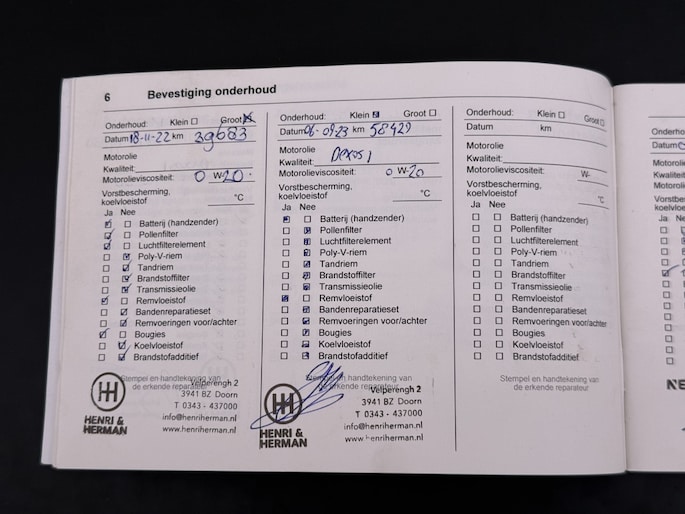 6 Bevestiging onderhoud
Onderhoud: Klein Groot
Datum 18-11-22 km 39683
Motorolie
Kwaliteit:
Motorolieviscositeit: 0 W-20
Vorstbescherming,
koelvloeistof °C
Ja Nee
Batterij (handzender)
Pollenfilter
Luchtfilterelement
Poly-V-riem
Tandriem
Brandstoffilter
Transmissieolie
Remvloeistof
Bandenreparatieset
Remvoeringen voor/achter
Bougies
Koelvloeistof
Brandstofadditief
Stempel en handtekening van
de erkende reparateur
HENRI &
HERMAN
Velperengh 2
3941 BZ Doorn
T 0343 - 437000
info@henriherman.nl
www.henriherman.nl
Onderhoud: Klein Groot
Datum 06-09-23 km 58429
Motorolie
Kwaliteit: Dexos 1
Motorolieviscositeit: 0 W-20
Vorstbescherming,
koelvloeistof °C
Ja Nee
Batterij (handzender)
Pollenfilter
Luchtfilterelement
Poly-V-riem
Tandriem
Brandstoffilter
Transmissieolie
Remvloeistof
Bandenreparatieset
Remvoeringen voor/achter
Bougies
Koelvloeistof
Brandstofadditief
Stempel en handtekening van
erkende reparateur
HENRI &
HERMAN
Velperengh 2
3941 BZ Doorn
T 0343 - 437000
info@henriherman.nl
www.henriherman.nl
Onderhoud: Klein Groot
Datum km
Motorolie
Kwaliteit:
Motorolieviscositeit: W-
Vorstbescherming,
koelvloeistof °C
Ja Nee
Batterij (handzender)
Pollenfilter
Luchtfilterelement
Poly-V-riem
Tandriem
Brandstoffilter
Transmissieolie
Remvloeistof
Bandenreparatieset
Remvoeringen voor/achter
Bougies
Koelvloeistof
Brandstofadditief
Stempel en handtekening van
de erkende reparateur